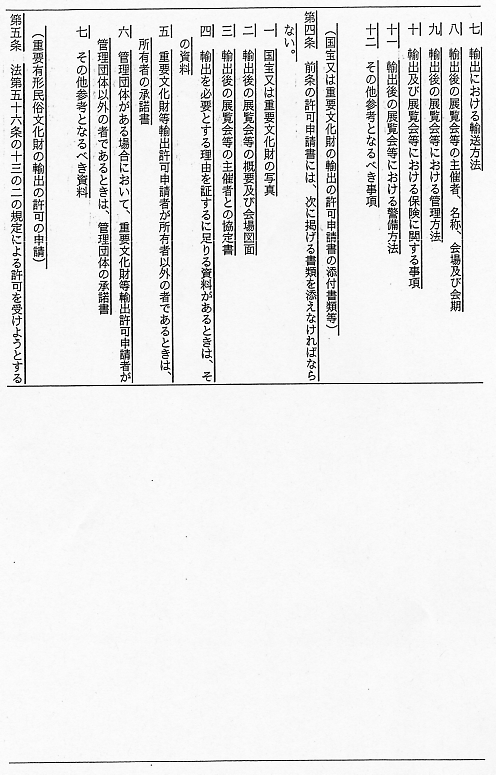 七　輸出における輸送方法
八　輸出後の展覧会等の主催者、名称、会場及び会期
九　輸出後の展覧会等における管理方法
十　輸出及び展覧会等における保険に関する事項
十一　輸出後の展覧会等における警備方法
十二　その他参考となるべき事項
（国宝又は重要文化財の輸出の許可申請書の添付書類等）
第四条　前条の許可申請書には、次に掲げる書類を添えなければなら
ない。
一　国宝又は重要文化財の写真
二　輸出後の展覧会等の概要及び会場図面
三　輸出後の展覧会等の主催者との協定書
四　輸出を必要とする理由を証するに足りる資料があるときは、そ
の資料
五　重要文化財等輸出許可申請者が所有者以外の者であるときは、
所有者の承諾書
六　管理団体がある場合において、重要文化財等輸出許可申請者が
管理団体以外の者であるときは、管理団体の承諾書
七　その他参考となるべき資料
（重要有形民俗文化財の輸出の許可の申請）
第五条　法第五十六条の十三の二の規定による許可を受けようとする